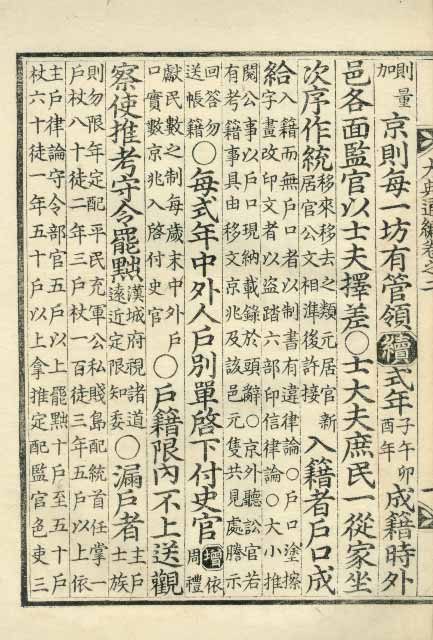 大典通編卷之二
則量加京則每一坊有管領續式年子午卯酉年成籍時外
邑各面監官以士夫擇差○士大夫庶民一從家坐
次序作統移來移去之類元居官新居官公文相準後許接入籍者戶口成
給入籍而無戶口者以制書有違律論○戶口塗擦字畫改印文者以盜踏六部印信律論○大小推
閱公事以戶口現納載錄於頭辭○京外聽訟官若有考籍事具由移文京兆及該邑元隻共見處謄示
回答勿送帳籍○每式年中外人戶別單啓下付史官增依周禮
獻民數之制每歲末中外戶口實數京兆入啓付史官○戶籍限內不上送觀
察使推考守令罷黜漢城府視諸道遠近定限知委○漏戶者主戶士族
則勿限年定配平民充軍公私賤島配統首任掌一戶杖八十徒二年三戶杖一百徒三年五戶以上依
主戶律論守令部官五戶以上罷黜十戶至五十戶杖六十徒一年五十戶以上拿推定配監官色吏三